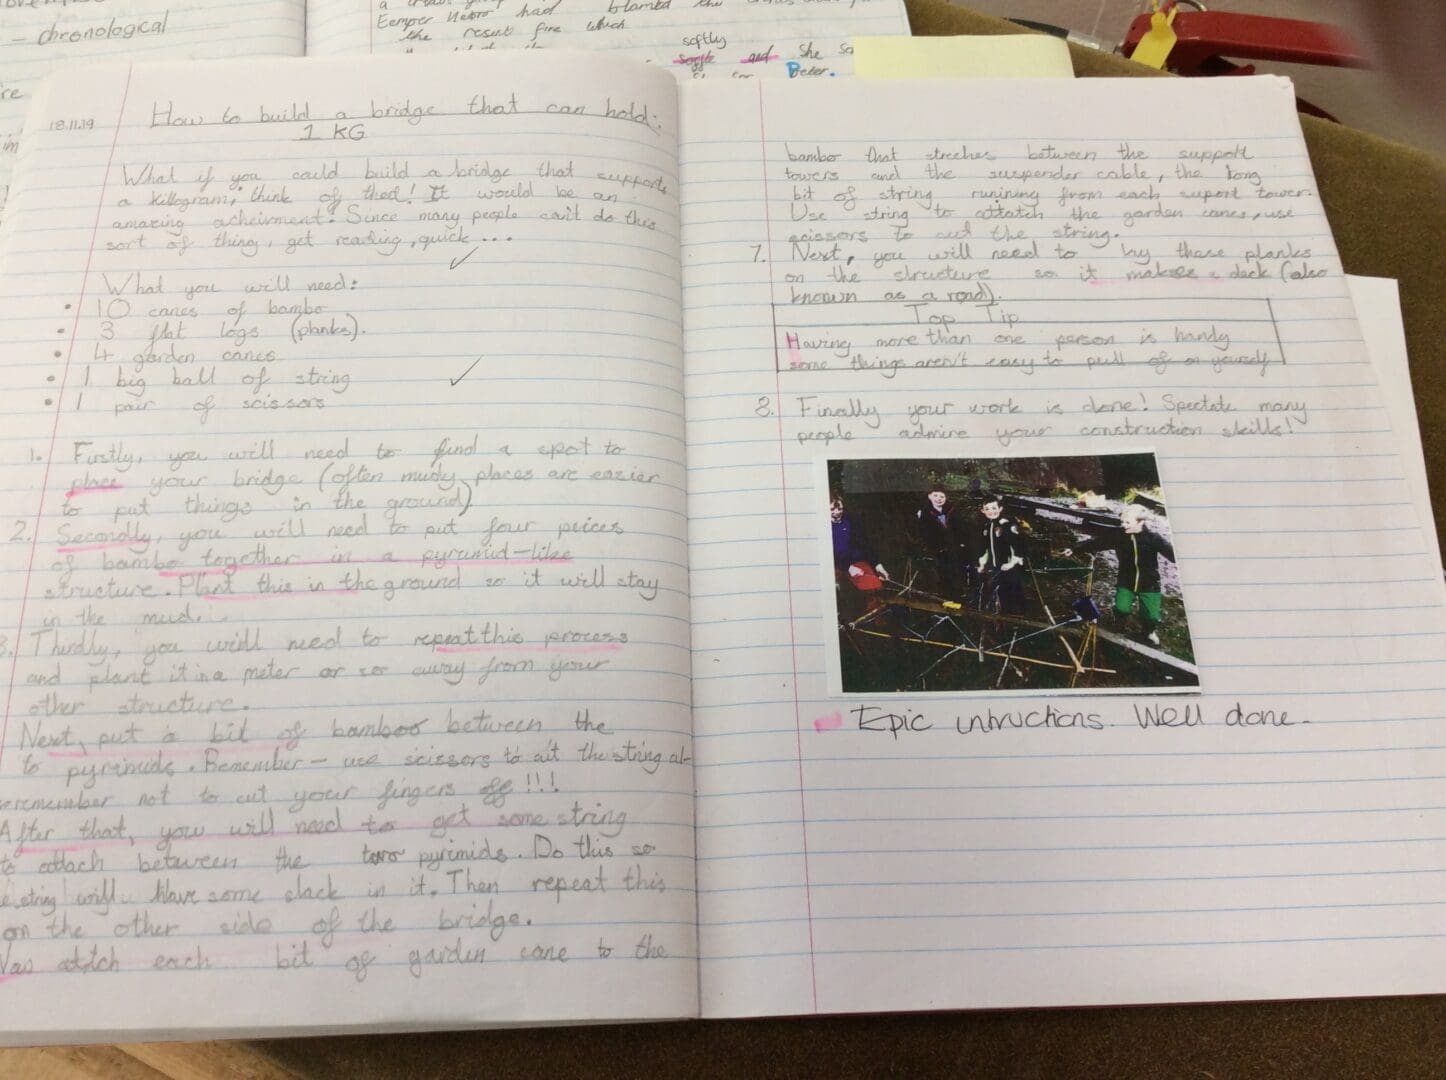 – chronological
the result fire which
softly
and She
Peter.
18.11.19
How to build a bridge that can hold:
1 KG
What if you could build a bridge that supports
a killogram, think of thed! It would be an
amazing acheivment! Since many people can't do this
sort of thing, get reading, quick...
What you will need:
• 10 canes of bambo
• 3 flat logs (planks).
• 4 garden canes
• 1 big ball of string
• 1 pair of scissors
1. Firstly, you will need to find a spot to
place your bridge (often mudy places are easier
to put things in the ground)
2. Secondly, you will need to put four peices
of bambo together in a pyramid-like
structure. Plant this in the ground so it will stay
in the mud.
3. Thirdly, you will need to repeat this process
and plant it in a meter or so away from your
other structure.
Next, put a bit of bamboo between the
to pyrimids. Remember – use scissors to cut the string al-
remember not to cut your fingers off!!!
After that, you will need to get some string
to attach between the two pyrimids. Do this so
string will have some slack in it. Then repeat this
on the other side of the bridge.
Now attch each bit of garden cane to the
bambo that streches between the support
towers and the suspender cable, the long
bit of string runining from each suport tower.
Use string to attatch the garden canes, use
scissors to cut the string.
7. Next, you will need to lay those planks
on the structure so it makes a deck (also
known as a road).
Top Tip
Having more than one person is handy
some things aren't easy to pull of on yourself
8. Finally your work is done! Spectate many
people admire your construction skills!
Epic intructions. Well done.